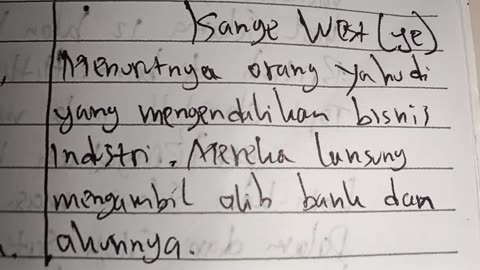 Kanye West (ye)
Menurutnya orang yahudi
yang mengendalikan bisnis
Indstri. Mereka lansung
mengambil alih bank dan
akunnya.